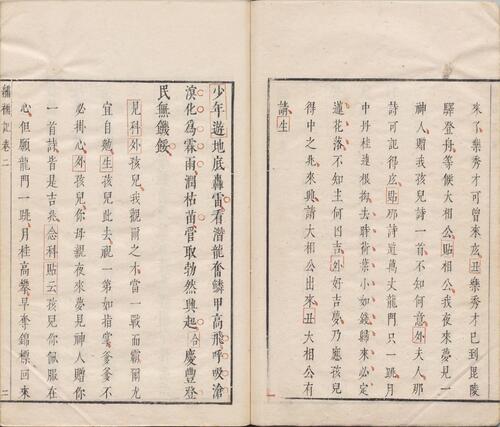 來了樂秀才可曾來庅丑樂秀才已到毘陵
驛登舟等候大相公貼相公我夜來夢見一
神人贈我孩兒詩一首不知何意外夫人那
詩可記得庅貼那詩道萬丈龍門只一跳月
中丹桂連根拗去時荷葉小如錢歸來必定
蓮花落不知主何凶吉外好吉夢乃應孩兒
得中之兆來興請大相公出來丑大相公有
請生
少年遊地底轟雷看潛龍奮鱗甲高飛呼吸滄
溟化為霖雨潤枯苗管取勃然興起合慶豐登
民無饑餒
見科外孩兒我觀爾之才當一戰而霸爾尤
宜自勉生孩兒此去視一第如指掌爹爹不
必掛心外孩兒你母親夜來夢見神人贈你
一首詩皆是吉兆念科貼云孩兒你佩服在
心但願龍門一跳月桂高攀早奪錦標回來
繡襦記卷二